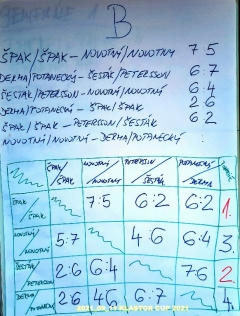 B
ŠPAK/ŠPAK - NOVOTNÝ/NOVOTNÝ 7 5
DERMA/POTANECKÝ - ŠESTÁK/PETERSSON 6:7
ŠESTÁK/PETERSSON - NOVOTNÝ/NOVOTNÝ 6:4
DERMA/POTANECKÝ - ŠPAK/ŠPAK 2:6
ŠPAK/ŠPAK - PETERSSON/ŠESTÁK 6 2
NOVOTNÝ/NOVOTNÝ - DERMA/POTANECKÝ
ŠPAK/ŠPAK NOVOTNÝ/NOVOTNÝ PETERSSON/ŠESTÁK POTANECKÝ/DERMA
ŠPAK/ŠPAK 7:5 6:2 6:2 1.
NOVOTNÝ/NOVOTNÝ 5:7 4 6 6:4 3.
ŠESTÁK/PETERSSON 2:6 6:4 7 6 2.
DERMA/POTANECKÝ 2 6 4 6 6:7 4.
2021_09_11 KLASTOR CUP 2021